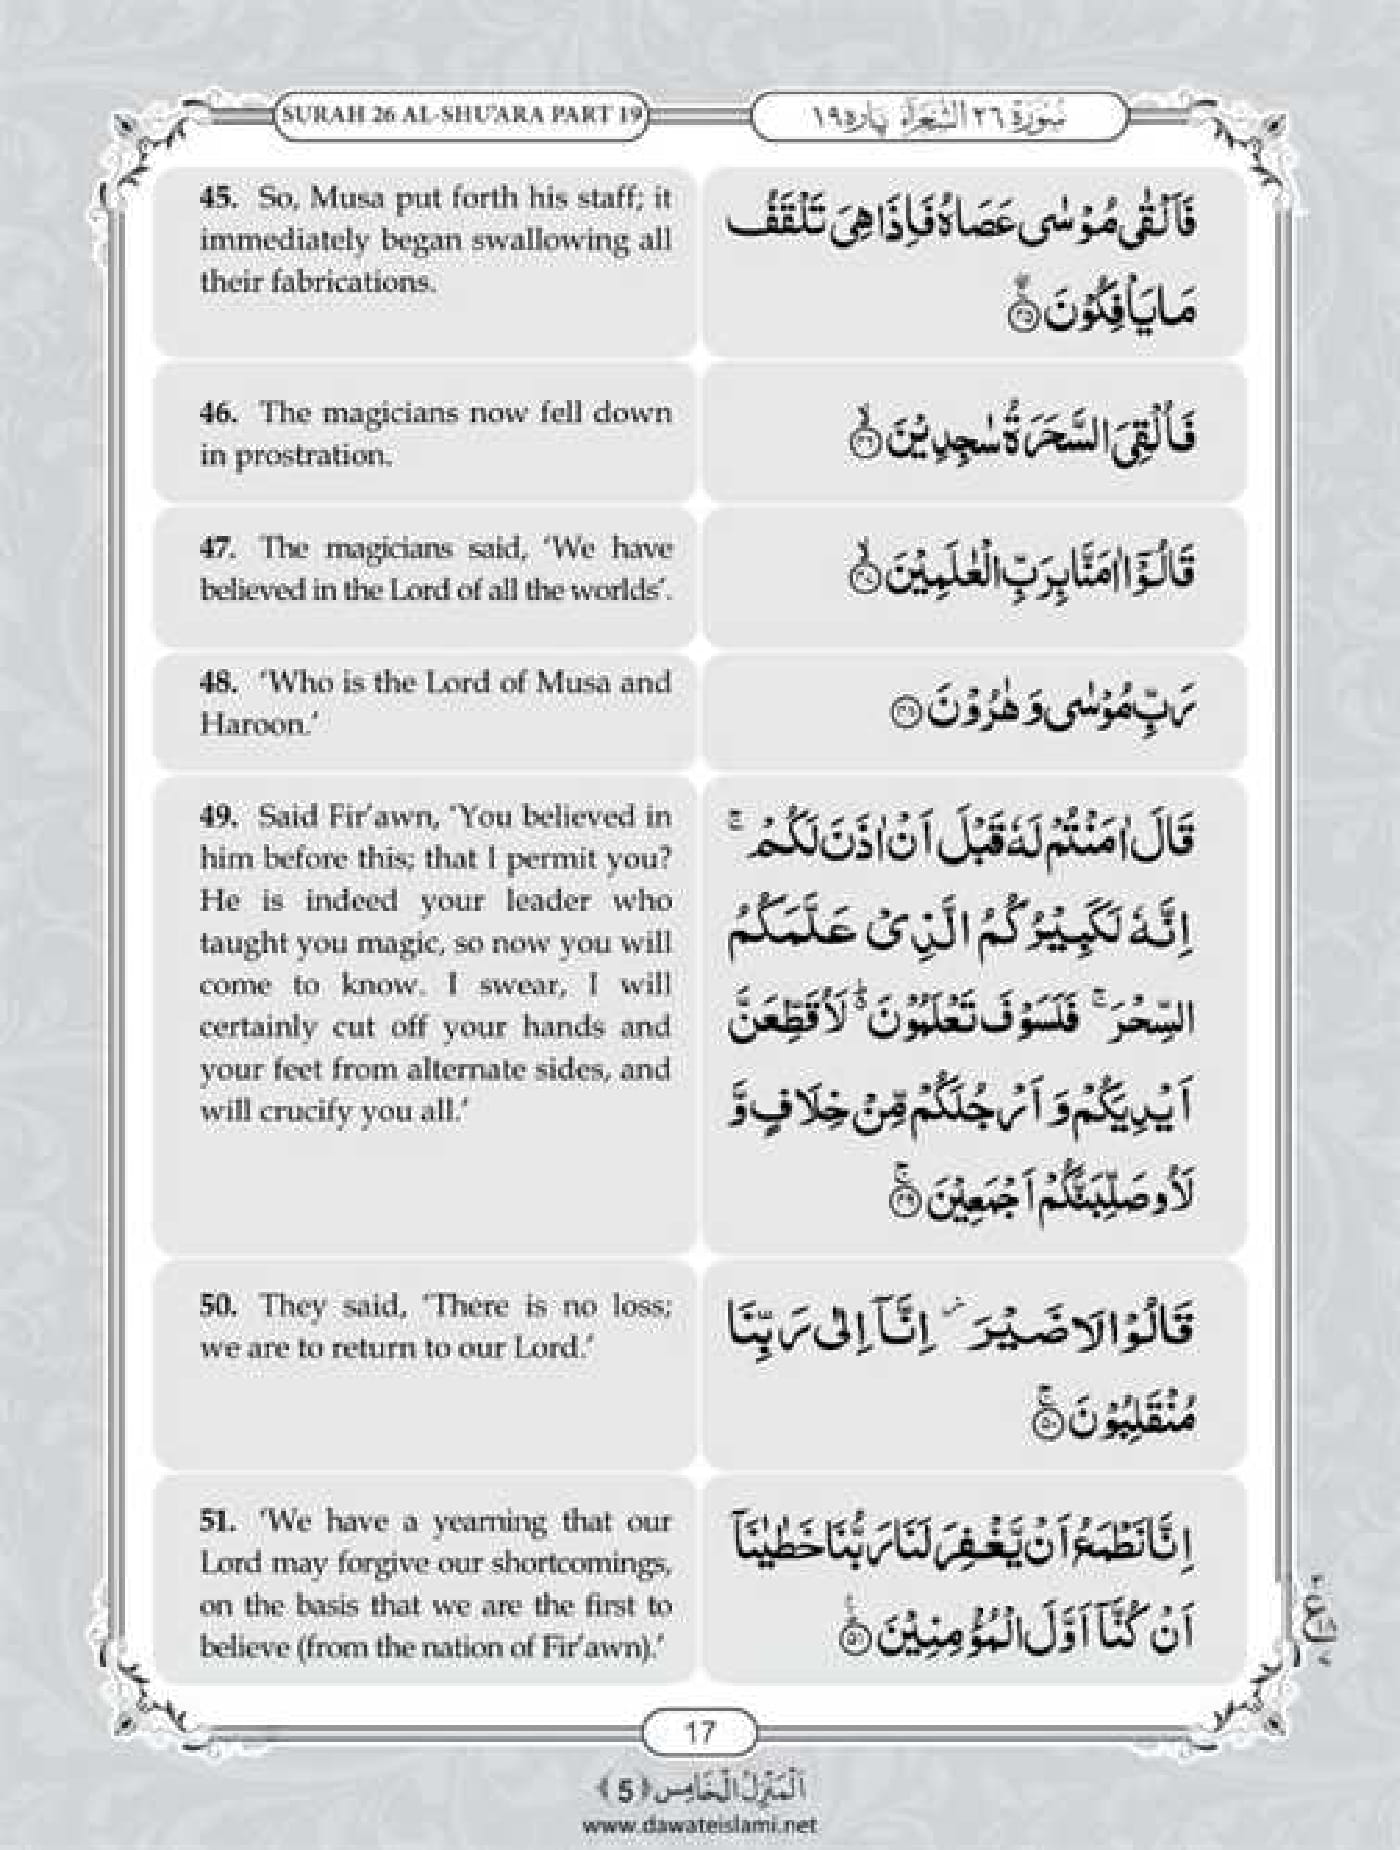 SURAH 26 AL-SHU'ARA PART 19
سُوْرَةُ ٢٦ الشُّعَرَآءِ پارہ ١٩
45. So, Musa put forth his staff; it
immediately began swallowing all
their fabrications.
فَاَلْقٰى مُوْسٰى عَصَاهُ فَاِذَا هِىَ تَلْقَفُ
مَا يَاْفِكُوْنَ ۚۖ ﴿٤٥﴾
46. The magicians now fell down
in prostration.
فَاُلْقِىَ السَّحَرَةُ سٰجِدِيْنَ ۙ ﴿٤٦﴾
47. The magicians said, 'We have
believed in the Lord of all the worlds'.
قَالُوْۤا اٰمَنَّا بِرَبِّ الْعٰلَمِيْنَ ۙ ﴿٤٧﴾
48. 'Who is the Lord of Musa and
Haroon.'
رَبِّ مُوْسٰى وَ هٰرُوْنَ ﴿٤٨﴾
49. Said Fir'awn, 'You believed in
him before this; that I permit you?
He is indeed your leader who
taught you magic, so now you will
come to know. I swear, I will
certainly cut off your hands and
your feet from alternate sides, and
will crucify you all.'
قَالَ اٰمَنْتُمْ لَهٗ قَبْلَ اَنْ اٰذَنَ لَكُمْ ۚ
اِنَّهٗ لَكَبِيْرُكُمُ الَّذِىْ عَلَّمَكُمُ
السِّحْرَ ۚ فَلَسَوْفَ تَعْلَمُوْنَ ۬ؕ لَاُقَطِّعَنَّ
اَيْدِيَكُمْ وَ اَرْجُلَكُمْ مِّنْ خِلَافٍ وَّ
لَاُوصَلِّبَنَّكُمْ اَجْمَعِيْنَ ۚ ﴿٤٩﴾
50. They said, 'There is no loss;
we are to return to our Lord.'
قَالُوْا لَا ضَيْرَ ۫ اِنَّاۤ اِلٰى رَبِّنَا
مُنْقَلِبُوْنَ ۚ ﴿٥٠﴾
51. 'We have a yearning that our
Lord may forgive our shortcomings,
on the basis that we are the first to
believe (from the nation of Fir'awn).'
اِنَّا نَطْمَعُ اَنْ يَّغْفِرَ لَنَا رَبُّنَا خَطٰيٰنَاۤ
اَنْ كُنَّاۤ اَوَّلَ الْمُؤْمِنِيْنَ ؕ ﴿٥١﴾
17
اَلْمَنْزِلُ الْخَامِس ﴿5﴾
www.dawateislami.net